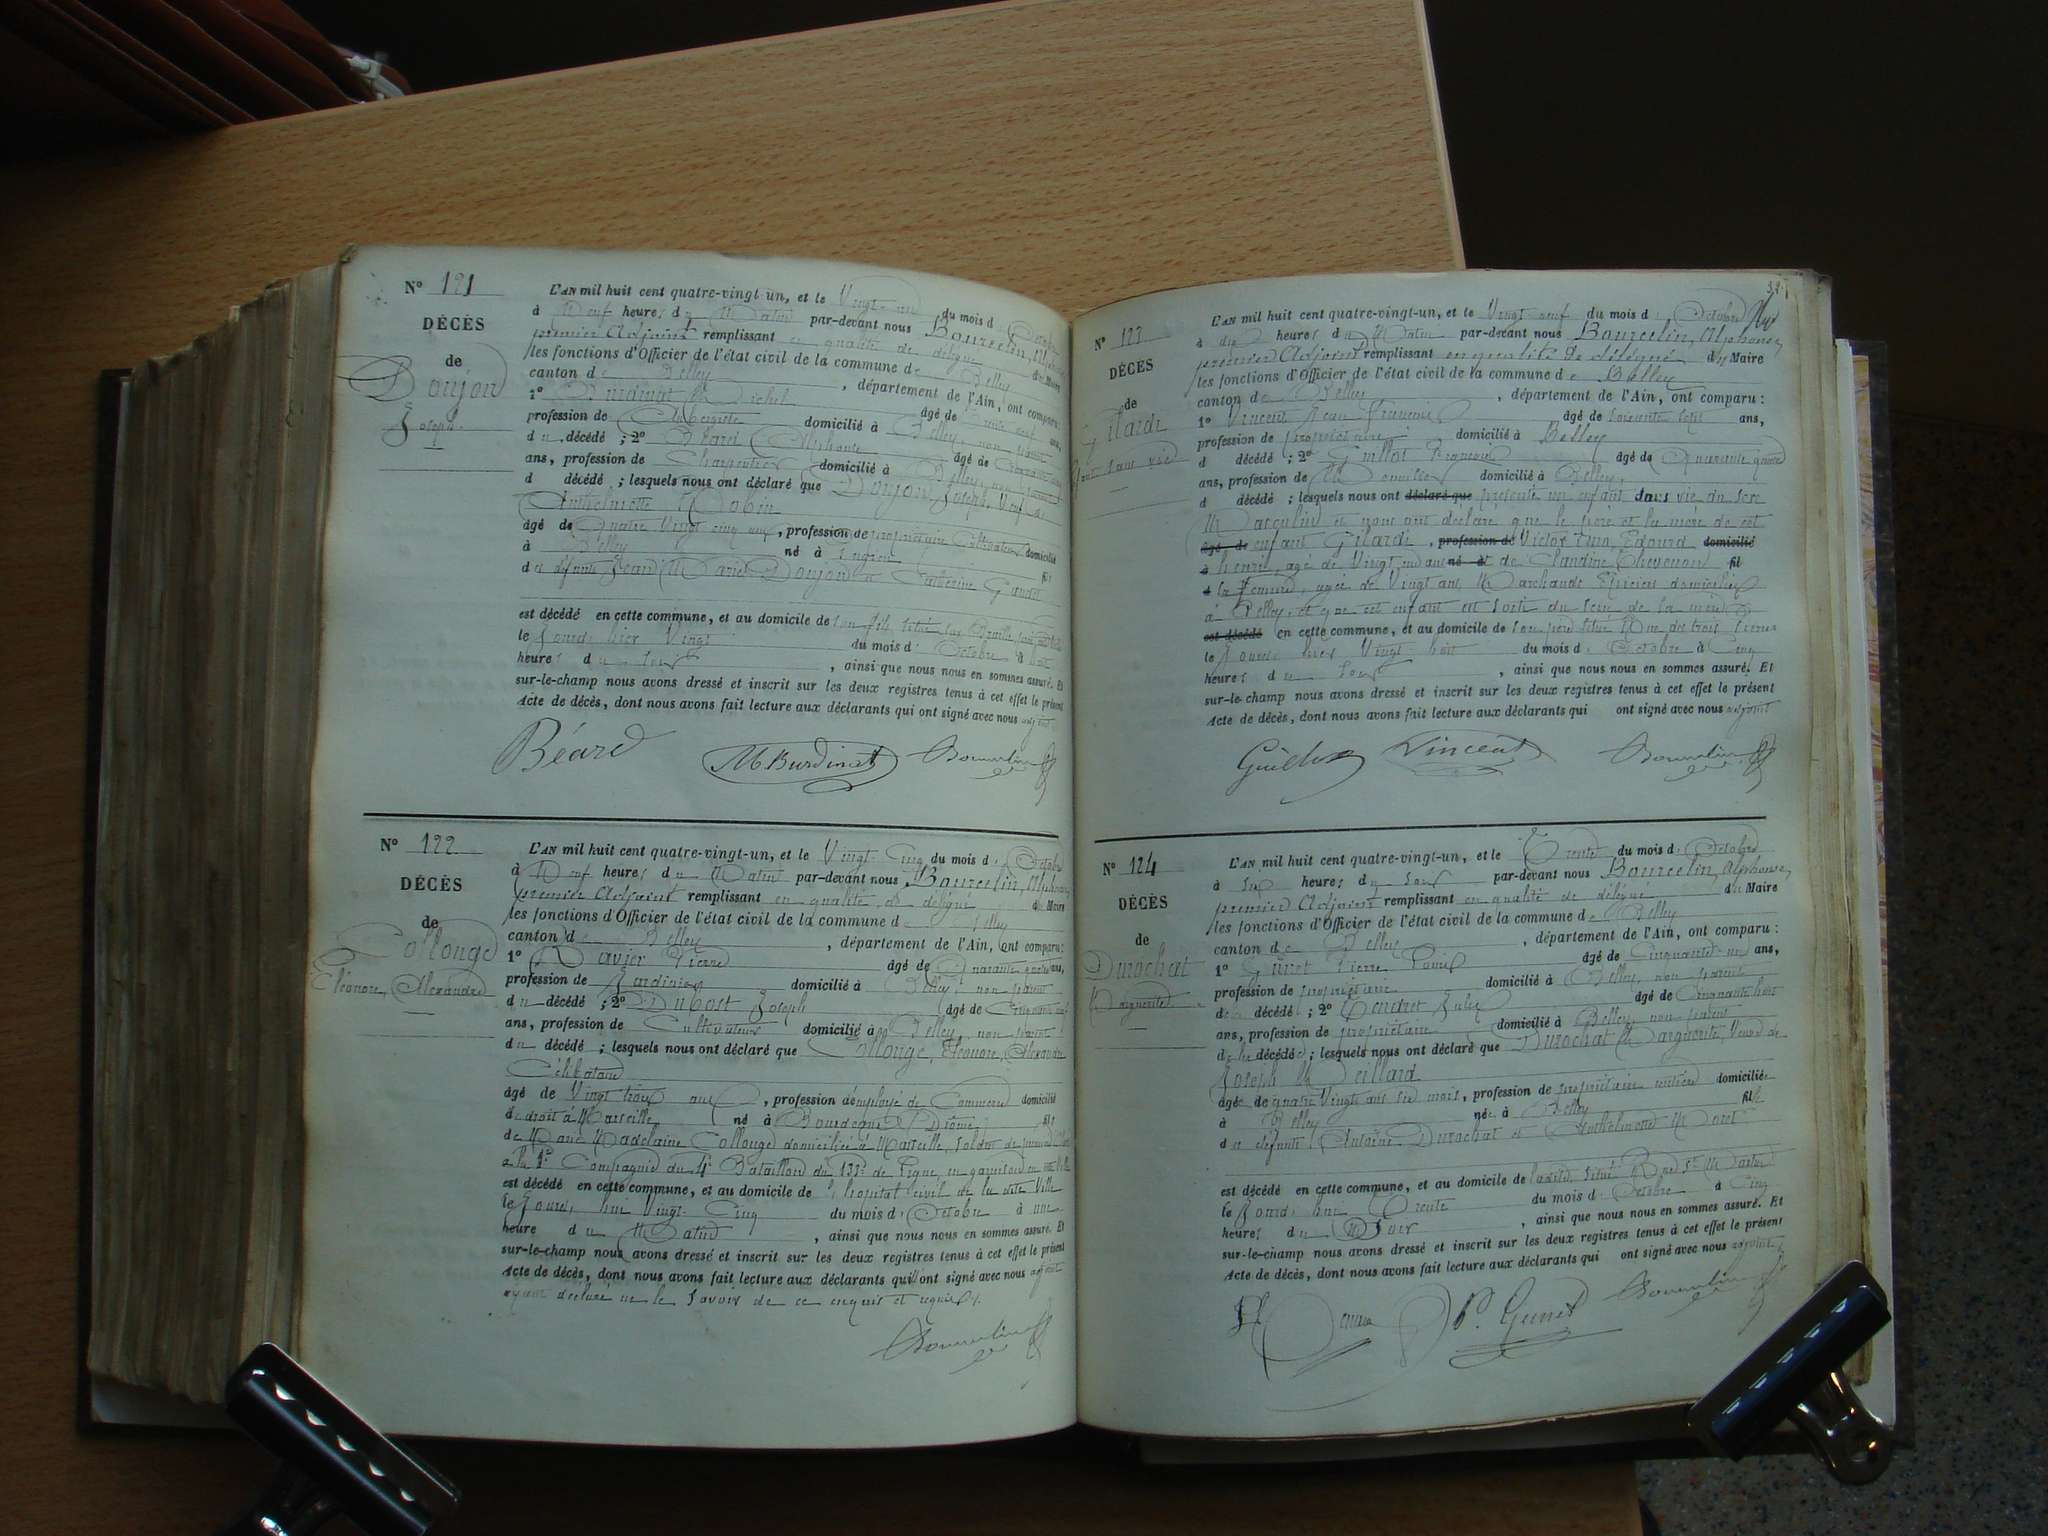 Nº 121
DÉCÈS
de
Doujon
Joseph
L'AN mil huit cent quatre-vingt-un, et le Vingt-un du mois d'Octobre
à Neuf heures du Matin par-devant nous Bourcelin, Alphonse,
premier Adjoint remplissant en qualité de délégué du Maire
les fonctions d'Officier de l'état civil de la commune de Belley
canton de Belley, département de l'Ain, ont comparu:
1º Burdinat Michel âgé de ans,
profession de Aubergiste domicilié à Belley, non parent
du décédé; 2º Béard Alphonse âgé de
ans, profession de Charpentier domicilié à Belley, non parent
d décédé; lesquels nous ont déclaré que Doujon Joseph, Veuf de
Anthelmette Robin
âgé de Quatre Vingt cinq ans, profession de propriétaire Cultivateur domicilié
à Belley né à fils
des défunts Jean Marie Doujon et Catherine
est décédé en cette commune, et au domicile de son fils situé
le Jourd'hier Vingt du mois d'Octobre à
heures du Soir, ainsi que nous nous en sommes assuré. Et
sur-le-champ nous avons dressé et inscrit sur les deux registres tenus à cet effet le présent
Acte de décès, dont nous avons fait lecture aux déclarants qui ont signé avec nous adjoint
Béard M Burdinat Bourcelin
Nº 122
DÉCÈS
de
Collonge
Eléonore, Alexandre
L'AN mil huit cent quatre-vingt-un, et le Vingt-Cinq du mois d'Octobre
à Neuf heures du Matin par-devant nous Bourcelin, Alphonse,
premier Adjoint remplissant en qualité de délégué du Maire
les fonctions d'Officier de l'état civil de la commune de Belley
canton de Belley, département de l'Ain, ont comparu:
1º Pierre âgé de Quarante ans,
profession de Jardinier domicilié à Belley, non parent
du décédé; 2º Dubost Joseph âgé de Cinquante
ans, profession de Cultivateur domicilié à Belley, non parent
du décédé; lesquels nous ont déclaré que Collonge, Eléonore, Alexandre
Célibataire
âgé de Vingt trois ans, profession d'employé de Commerce domicilié
de droit à Marseille né à Bourdeaux (Drôme) fils
de Marie Madelaine Collonge domiciliée à Marseille, Soldat de
à la 1re Compagnie du 4e Bataillon du 133e de ligne, en garnison en cette Ville
est décédé en cette commune, et au domicile de l'hopital civil de la dite Ville
le Jourd'hui Vingt-Cinq du mois d'Octobre à une
heure du Matin, ainsi que nous nous en sommes assuré. Et
sur-le-champ nous avons dressé et inscrit sur les deux registres tenus à cet effet le présent
Acte de décès, dont nous avons fait lecture aux déclarants qui ont signé avec nous adjoint
ayant déclaré ne le savoir de ce enquis et requis.
Bourcelin
Nº 123
DÉCÈS
de
Gilardi
Enfant sans vie
L'AN mil huit cent quatre-vingt-un, et le Vingt neuf du mois d'Octobre
à dix heures du Matin par-devant nous Bourcelin, Alphonse,
premier Adjoint remplissant en qualité de délégué du Maire
les fonctions d'Officier de l'état civil de la commune de Belley
canton de Belley, département de l'Ain, ont comparu:
1º Vincent Jean François âgé de soixante sept ans,
profession de propriétaire domicilié à Belley
d décédé; 2º Guillot âgé de Quarante
ans, profession de Menuisier domicilié à Belley,
d décédé; lesquels nous ont déclaré que présenté un enfant sans vie du sexe
Masculin et nous ont déclaré que le père et la mère de cet
âgé de enfant Gilardi, profession de Victor Edouard domicilié
à henri, agé de Vingt ans né à et de Claudine Thevenon fil
d sa femme, agée de Vingt ans, Marchands Epiciers domiciliés
à Belley, et que cet enfant est sorti du sein de la mère
est décédé en cette commune, et au domicile de son père situé Rue des trois
le Jourd'hier Vingt huit du mois d'Octobre à Cinq
heures du Soir, ainsi que nous nous en sommes assuré. Et
sur-le-champ nous avons dressé et inscrit sur les deux registres tenus à cet effet le présent
Acte de décès, dont nous avons fait lecture aux déclarants qui ont signé avec nous adjoint
Guillot Vincent Bourcelin
Nº 124
DÉCÈS
de
Durochat
Marguerite
L'AN mil huit cent quatre-vingt-un, et le Trente du mois d'Octobre
à six heures du Soir par-devant nous Bourcelin, Alphonse,
premier Adjoint remplissant en qualité de délégué du Maire
les fonctions d'Officier de l'état civil de la commune de Belley
canton de Belley, département de l'Ain, ont comparu:
1º Pierre Louis âgé de Cinquante un ans,
profession de propriétaire domicilié à Belley, non parent
de décédé; 2º Jules âgé de Cinquante huit
ans, profession de propriétaire domicilié à Belley, non parent
de la décédée; lesquels nous ont déclaré que Durochat Marguerite, Veuve de
Joseph Meillard
âgée de quatre Vingt ans six mois, profession de propriétaire domiciliée
à Belley née à Belley fille
des défunts Antoine Durochat et Anthelmette
est décédé en cette commune, et au domicile de situé Rue St Martin
le Jourd'hui Trente du mois d'Octobre à Cinq
heures du Soir, ainsi que nous nous en sommes assuré. Et
sur-le-champ nous avons dressé et inscrit sur les deux registres tenus à cet effet le présent
Acte de décès, dont nous avons fait lecture aux déclarants qui ont signé avec nous adjoint
Bourcelin